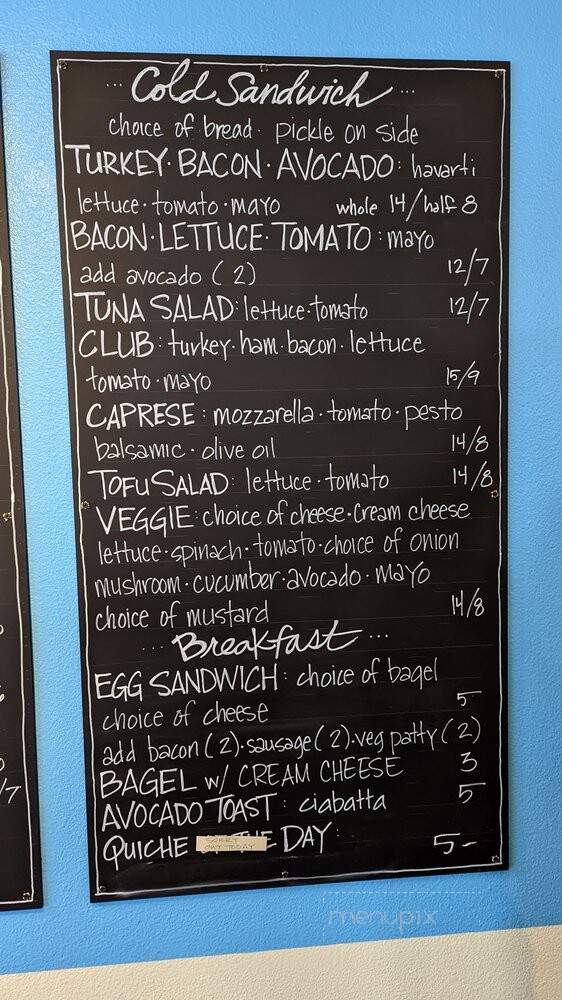 ··· Cold Sandwich ···
choice of bread · pickle on side
TURKEY · BACON · AVOCADO : havarti
lettuce · tomato · mayo whole 14/half 8
BACON · LETTUCE · TOMATO : mayo
add avocado (2) 12/7
TUNA SALAD : lettuce · tomato 12/7
CLUB : turkey · ham · bacon · lettuce
tomato · mayo 15/9
CAPRESE : mozzarella · tomato · pesto
balsamic · olive oil 14/8
TOFU SALAD : lettuce · tomato 14/8
VEGGIE : choice of cheese · cream cheese
lettuce · spinach · tomato · choice of onion
mushroom · cucumber · avocado · mayo
choice of mustard 14/8
··· Breakfast ···
EGG SANDWICH : choice of bagel
choice of cheese 5-
add bacon (2) · sausage (2) · veg patty (2)
BAGEL w/ CREAM CHEESE 3
AVOCADO TOAST : ciabatta 5
QUICHE OF THE DAY : 5-
SORRY
OUT TODAY
menupix
/7